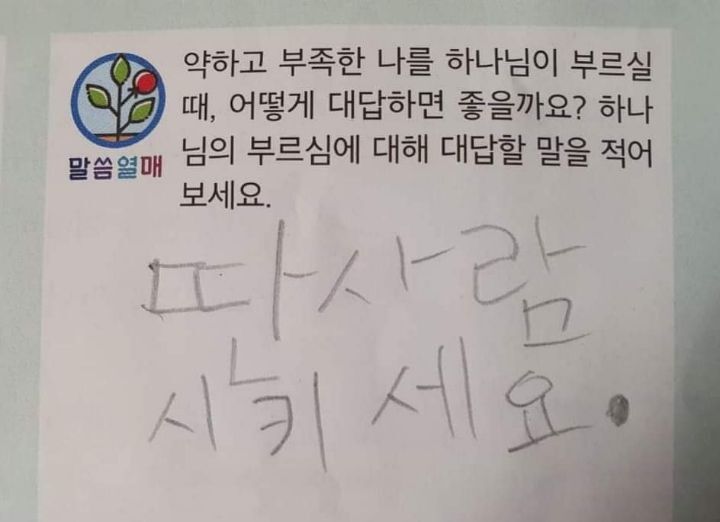 약하고 부족한 나를 하나님이 부르실
때, 어떻게 대답하면 좋을까요? 하나
님의 부르심에 대해 대답할 말을 적어
보세요.
말씀열매
딴사람
시키세요.